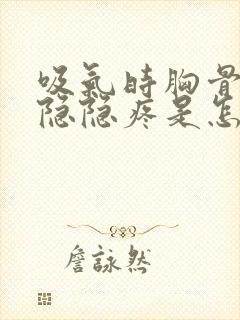 吸氣時胸骨
隐隐疼是怎
詹詠然